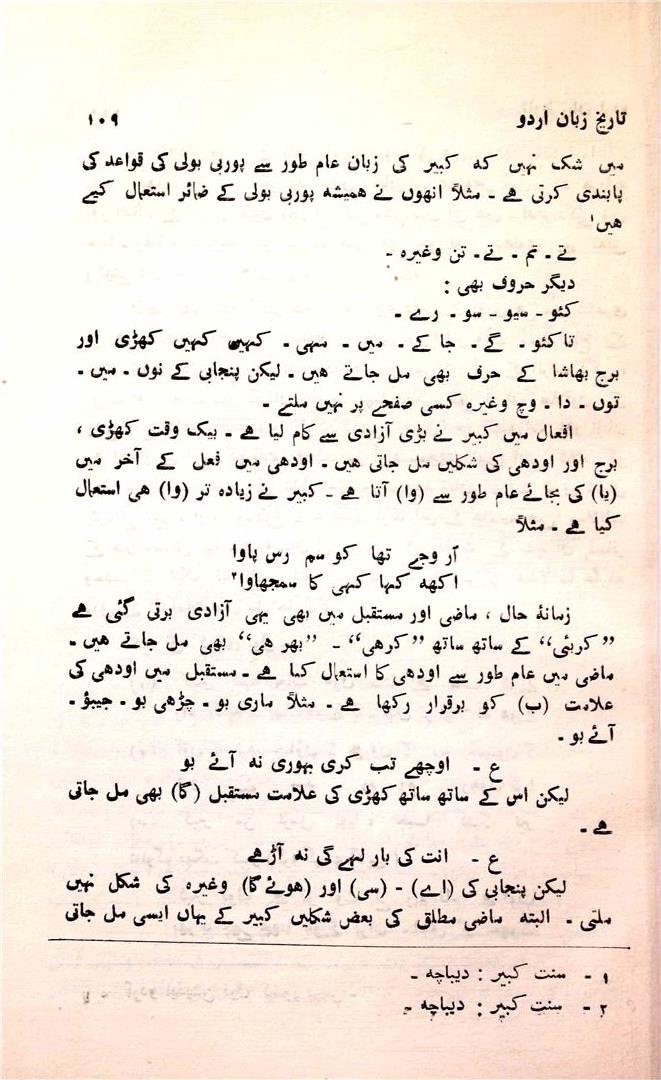 تاریخ زبان اردو ۱۰۹
میں شک نہیں کہ کبیر کی زبان عام طور سے پوربی بولی کی قواعد کی
پابندی کرتی ہے ۔ مثلاً انھوں نے ہمیشہ پوربی بولی کے ضمائر استعمال کیے
ہیں۱
تے ۔ تم ۔ تے ۔ تن وغیرہ ۔
دیگر حروف بھی :
کئو ۔ سیو ۔ سو ۔ رے ۔
تا کئو ۔ گے ۔ جا کے ۔ میں ۔ منہی ۔ کہیں کہیں کھڑی اور
برج بھاشا کے حرف بھی مل جاتے ہیں ۔ لیکن پنجابی کے نوں ۔ میں ۔
توں ۔ دا ۔ وچ وغیرہ کسی صفحے پر نہیں ملتے ۔
افعال میں کبیر نے بڑی آزادی سے کام لیا ہے ۔ بیک وقت کھڑی ،
برج اور اودھی کی شکلیں مل جاتی ہیں ۔ اودھی میں فعل کے آخر میں
(یا) کی بجائے عام طور سے (وا) آتا ہے ۔ کبیر نے زیادہ تر (وا) ہی استعمال
کیا ہے ۔ مثلاً
آر وجے تھا کو سم رس پاوا
اکھہ کہا کہی کا سمجھاوا۲
زمانۂ حال ، ماضی اور مستقبل میں بھی یہی آزادی برتی گئی ہے
”کربئی“ کے ساتھ ساتھ ”کرھی“ ۔ ”بھر ھی“ بھی مل جاتے ہیں ۔
ماضی میں عام طور سے اودھی کا استعمال کیا ہے ۔ مستقبل میں اودھی کی
علامت (ب) کو برقرار رکھا ہے ۔ مثلاً ماری بو ۔ چڑھی بو ۔ جیبؤ ۔
آئے بو ۔
ع ۔ اوچھے تب کری بہوری نہ آئے بو
لیکن اس کے ساتھ ساتھ کھڑی کی علامت مستقبل (گا) بھی مل جاتی
ہے ۔
ع ۔ انت کی بار لہے گی نہ آڑھے
لیکن پنجابی کی (اے) ۔ (سی) اور (ہوئے گا) وغیرہ کی شکل نہیں
ملتی ۔ البتہ ماضی مطلق کی بعض شکلیں کبیر کے یہاں ایسی مل جاتی
۱ ۔ سنت کبیر : دیباچہ ۔
۲ ۔ سنت کبیر : دیباچہ ۔